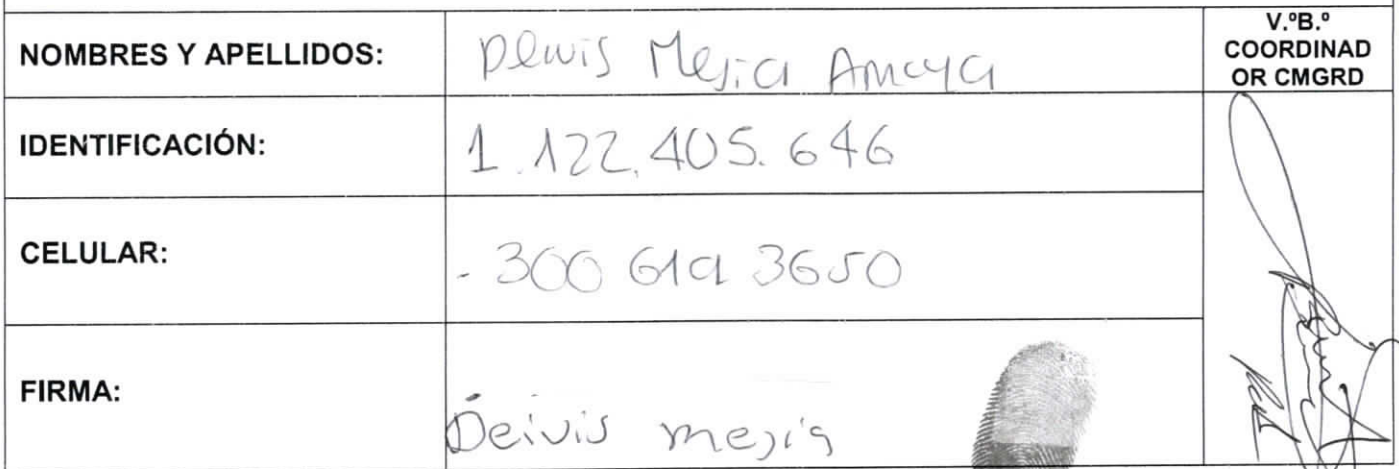 NOMBRES Y APELLIDOS: Deivis Mejia Amaya
V.ºB.º
COORDINAD
OR CMGRD
IDENTIFICACIÓN: 1.122.405.646
CELULAR: - 300 619 3650
FIRMA: Deivis mejia